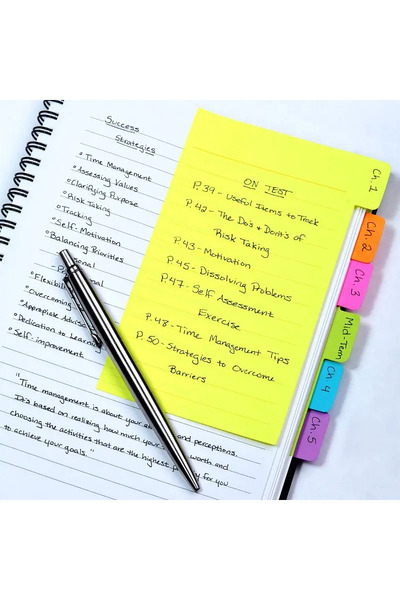 Success
Strategies
• Time Management
• Assessing Values
• Clarifying Purpose
• Risk Taking
• Tracking
• Self-Motivation
• Balancing Priorities
Flexibility
• Overcoming
• Appropiate Advising
• Dedication to Learning
• Self-improvement
"Time management is about your and perceptions.
It's based on realizing how much your worth and
choosing the activities that are the highest for you
to achieve your goals."
ON TEST
P.39 - Useful Items to Track
P.42 - The Do's & Dont's of
Risk Taking
P.43 - Motivation
P.45 - Dissolving Problems
P.47 - Self Assessment
Exercise
P.48 - Time Management Tips
P.50 - Strategies to Overcome
Barriers
Ch. 1
Ch. 2
Ch. 3
Mid-Term
Ch. 4
Ch. 5